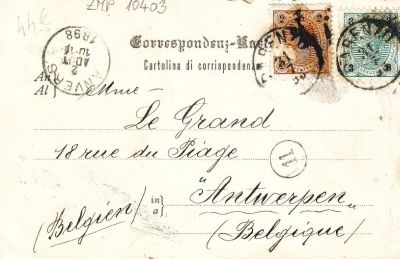 ZMP 10403
44 €
Correspondenz-Ka
Cartolina di corrispondenz
ANVERS
2
AOUT
1898
S. DENZIO
An
Al
Mme
Le Grand
18 rue du Piage
11
"Antwerpen"
in
a
(Belgien)
(Belgique)